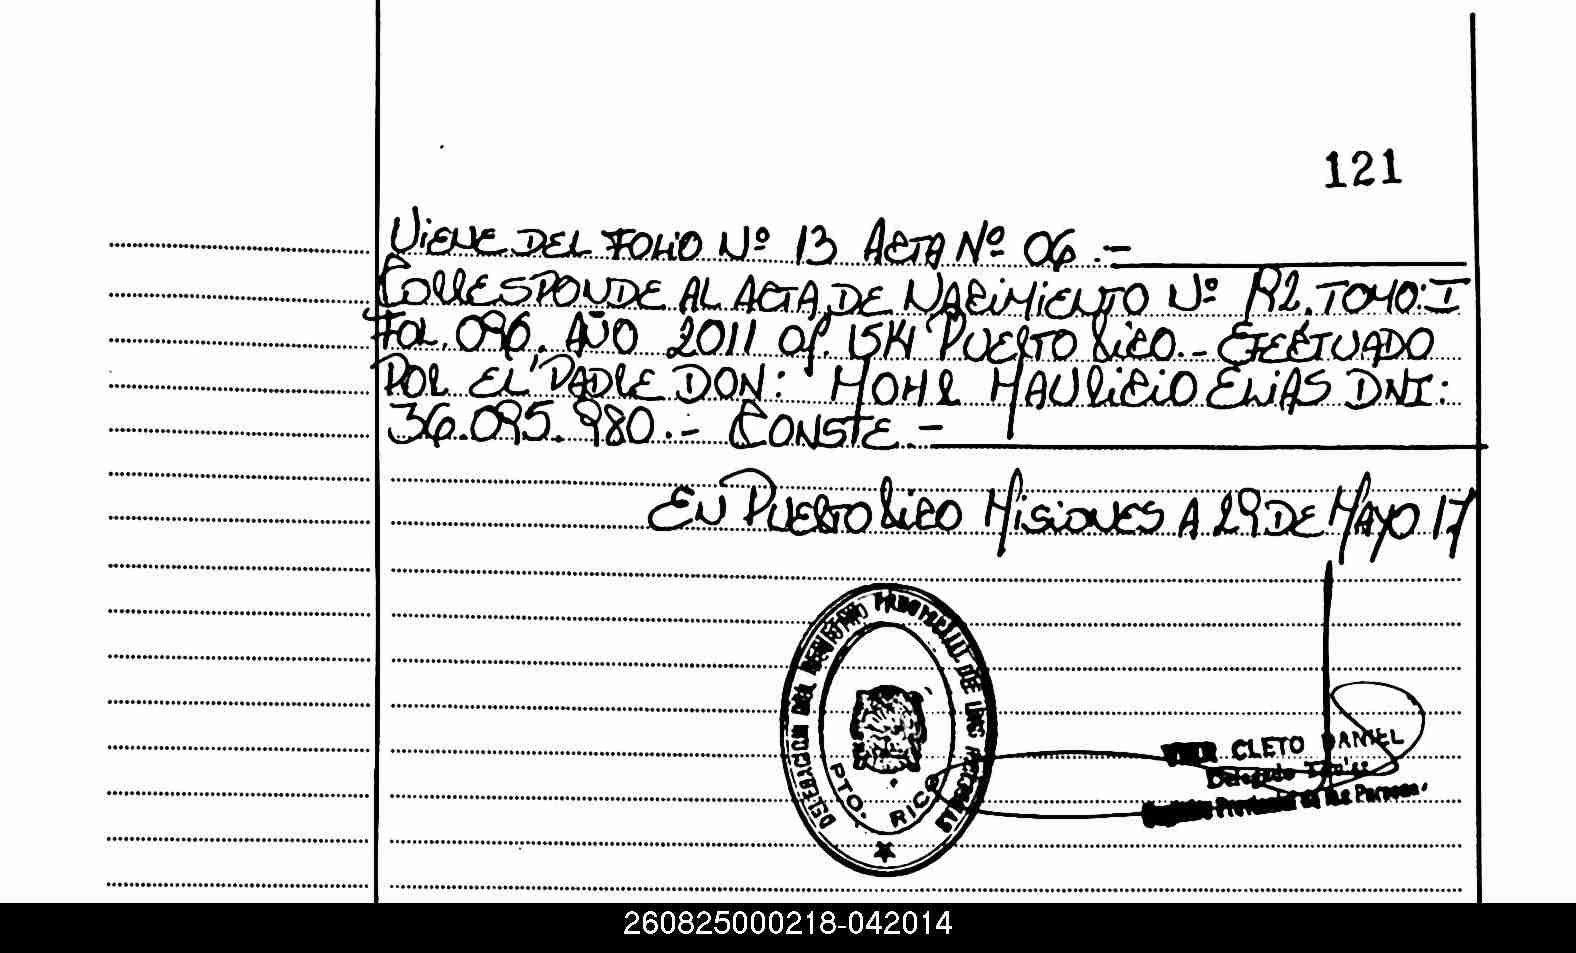 121
VIENE DEL FOLIO Nº 13 ACTA Nº 06.-
CORRESPONDE AL ACTA DE NACIMIENTO Nº 192. TOMO: I
FOL. 096. AÑO 2011 Of. 15M PUERTO RICO.- EFECTUADO
POR EL PADRE DON: MOHR MAURICIO ELIAS DNI:
36.095.980.- CONSTE.-
EN PUERTO RICO MISIONES A 29 DE MAYO 17
DELEGACION DEL REGISTRO PROVINCIAL DE LAS PERSONAS
PTO. RICO
CLETO DANIEL
Delegado
Provincial de las Personas
260825000218-042014